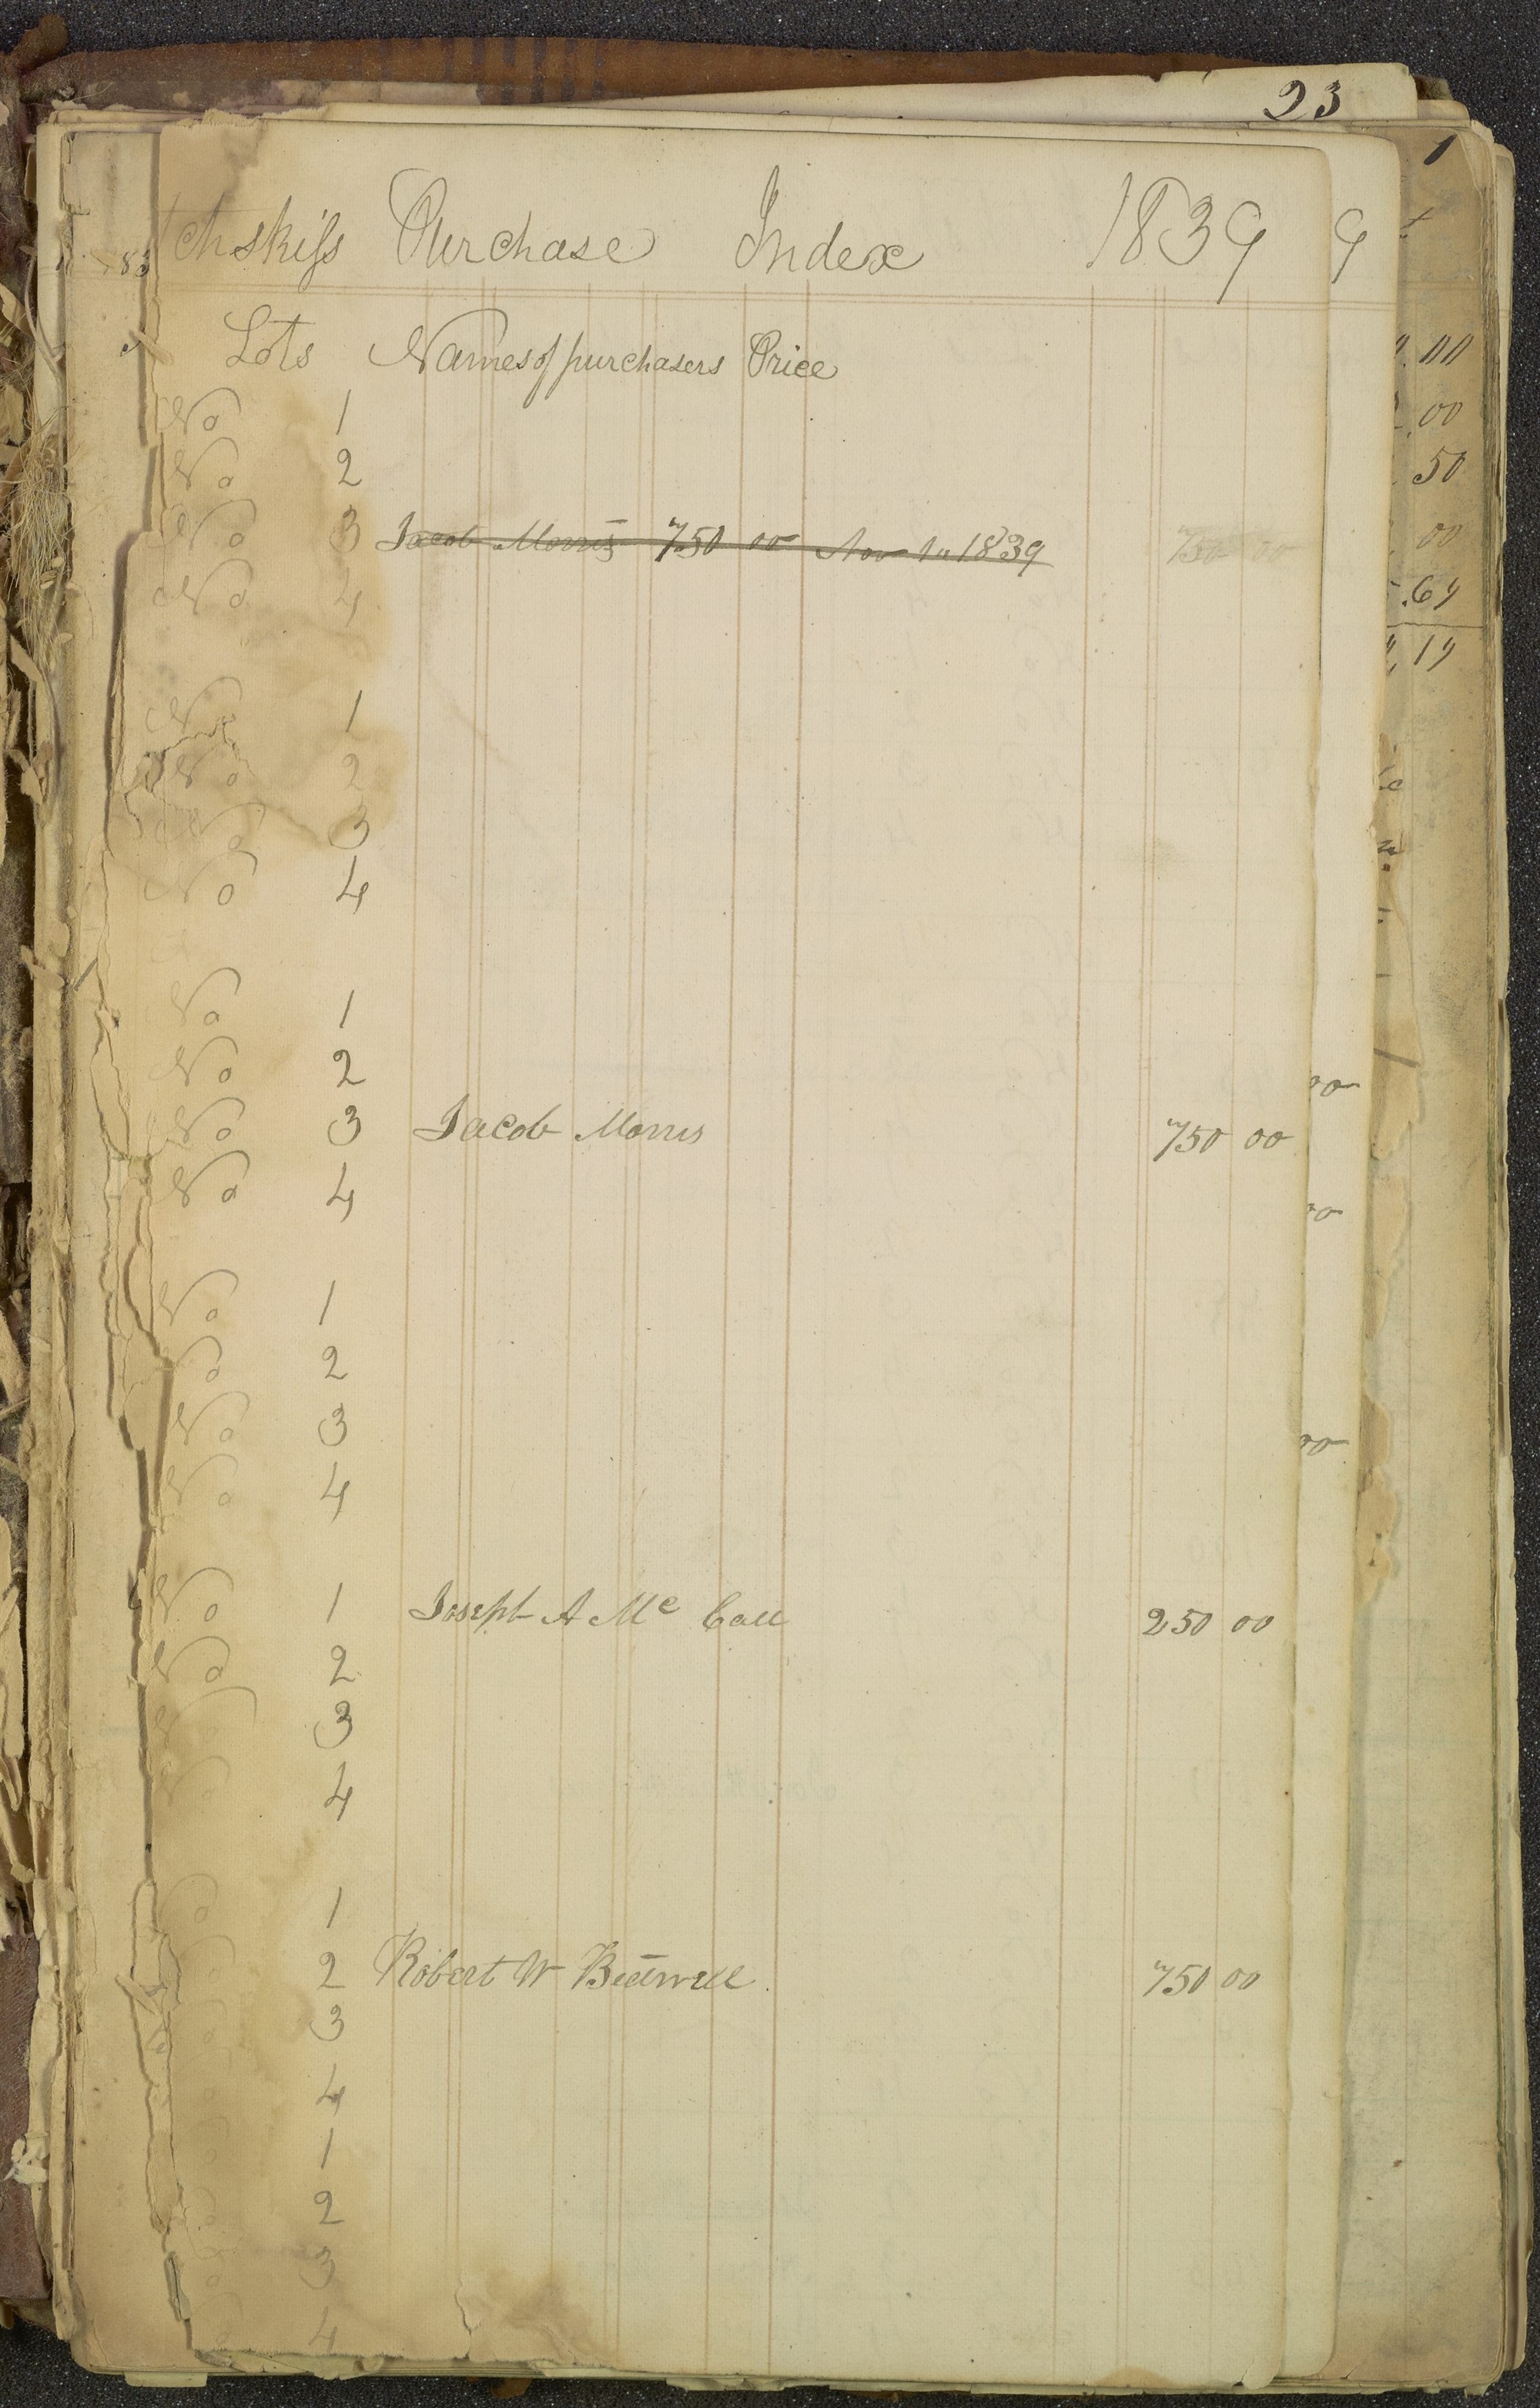 23
1
chskiss Purchase Index 1839 9
83
Lots Names of purchasers Price
00
No 1
00
No 2
50
No 3 Jacob Morris 750 00 Nov 1839 750 00
00
No 4
.69
19
No 1
No 2
No 3
No 4
No 1
No 2
00
No 3 Jacob Morris 750 00
No 4
00
No 1
No 2
No 3
00
No 4
No 1 Joseph A Mc Call 250 00
No 2
No 3
No 4
No 1
2 Robert W 750 00
3
4
1
2
3
4